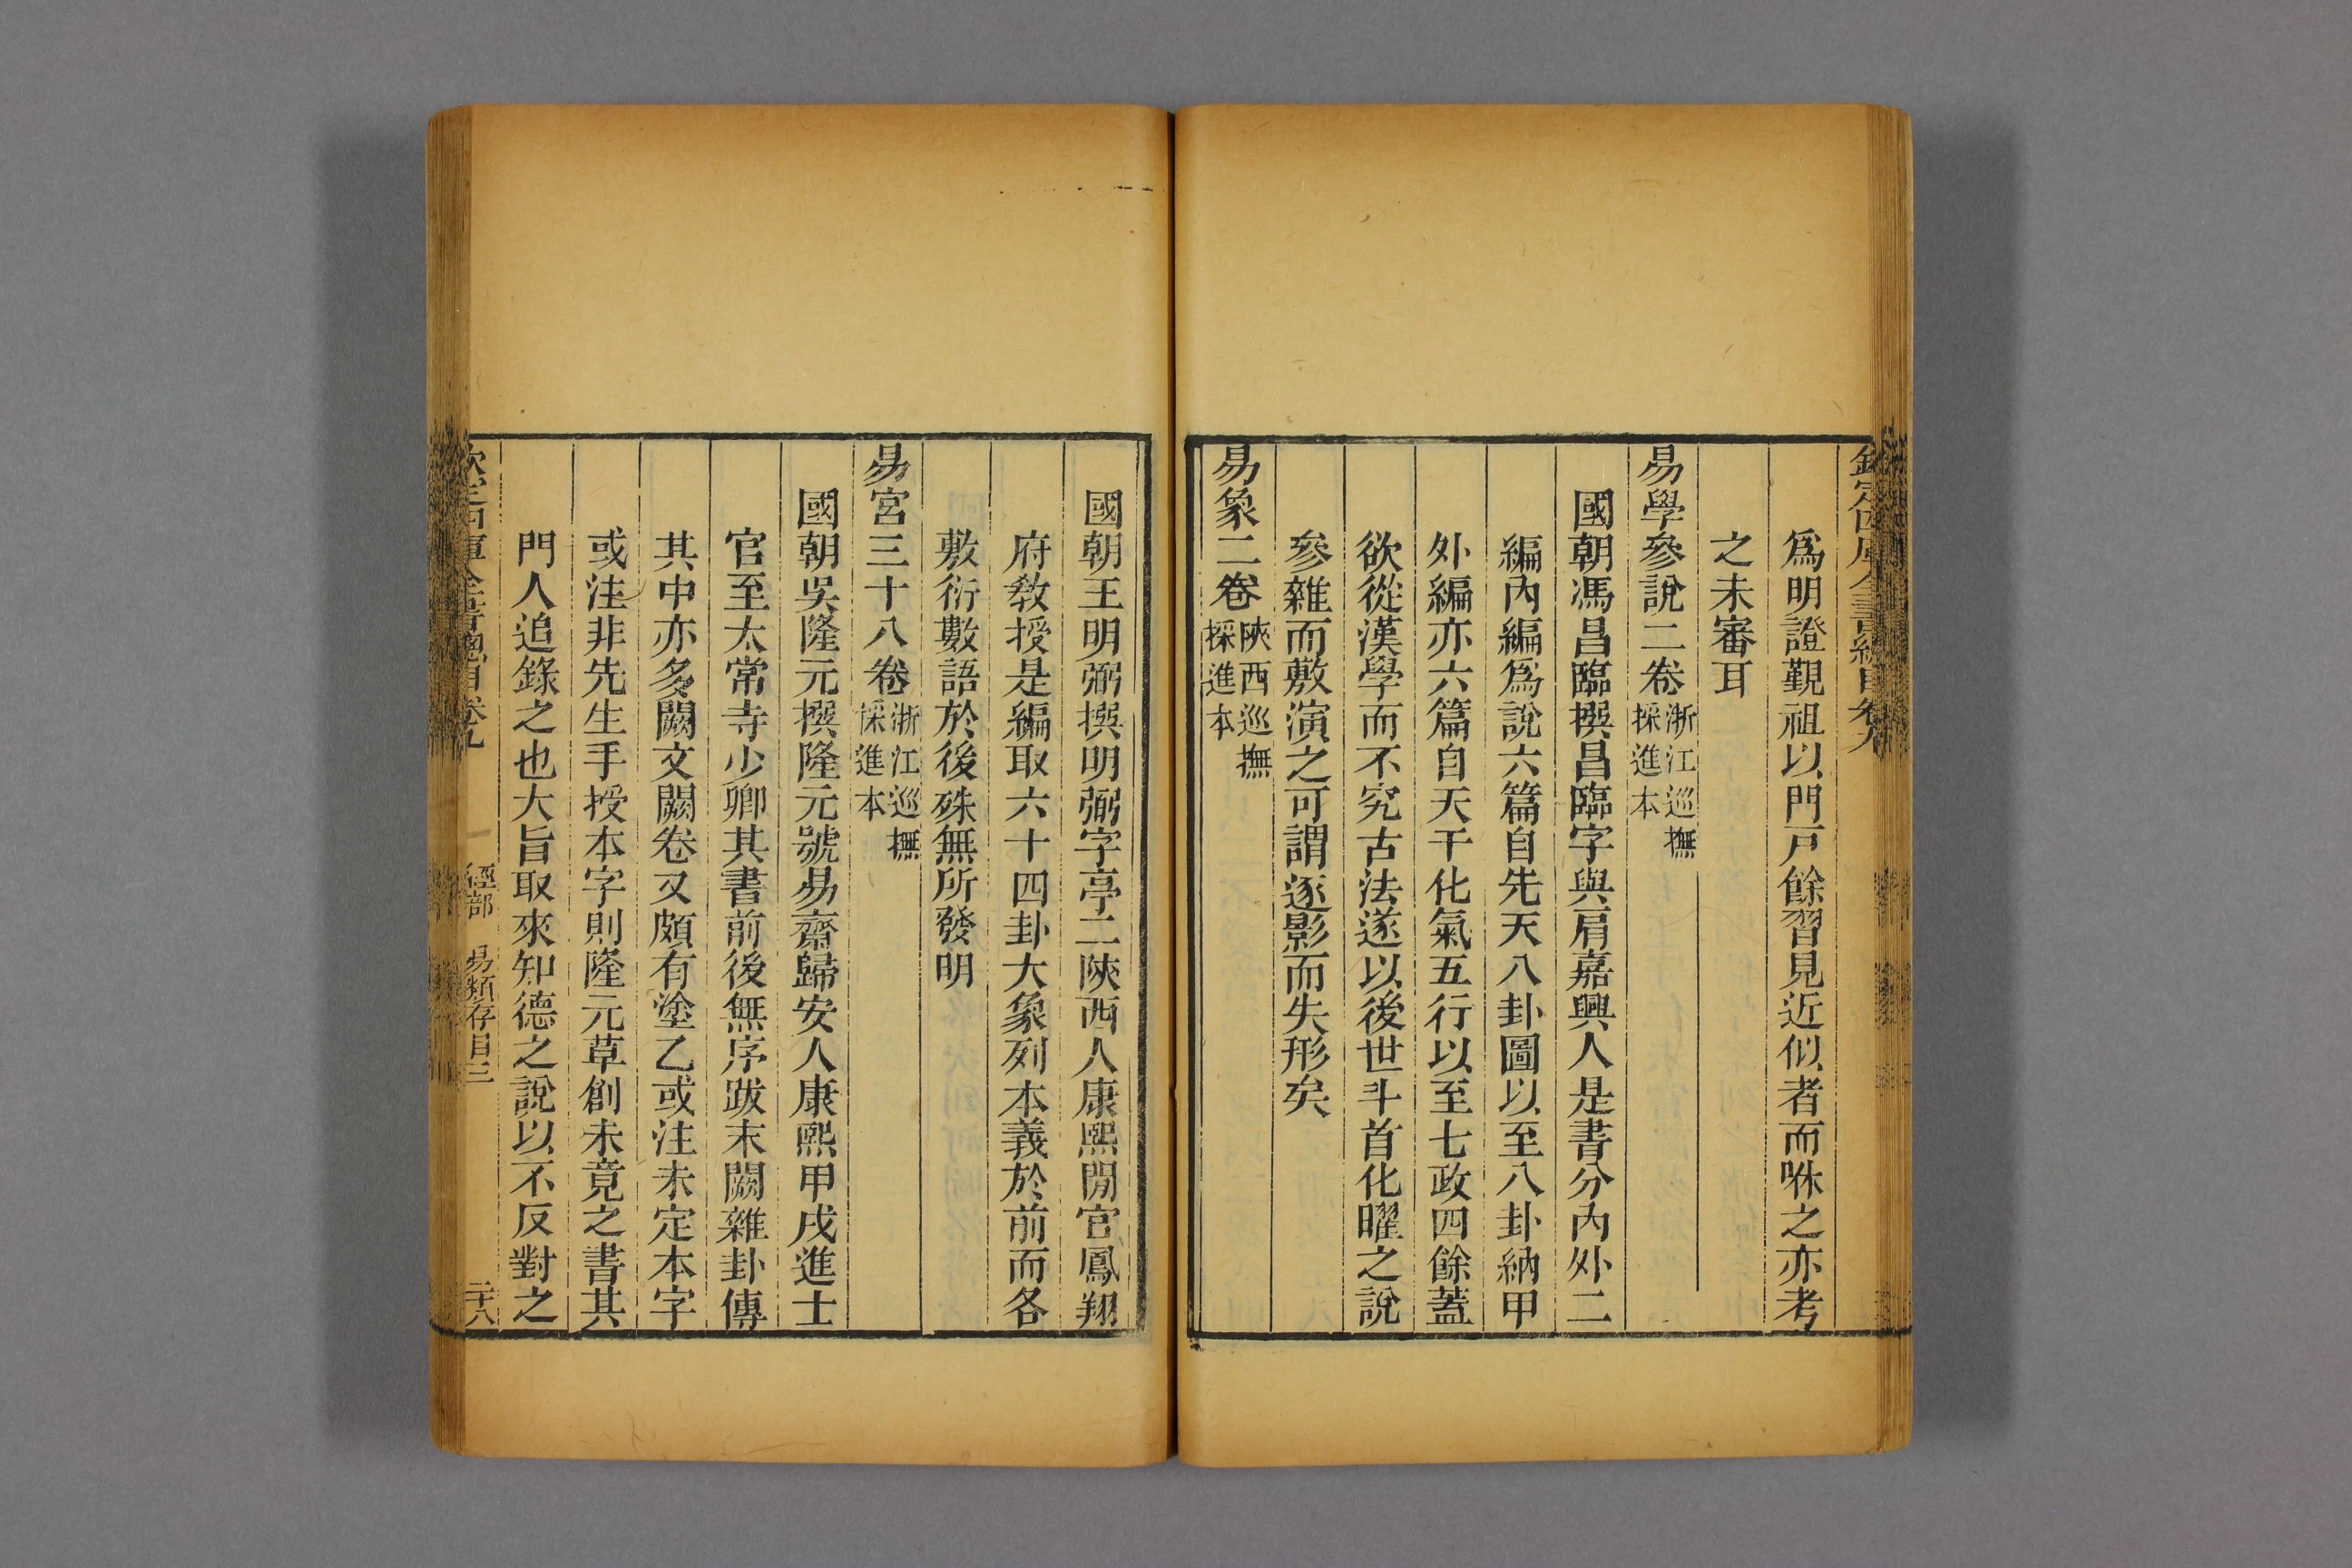 欽定四庫全書總目卷九
爲明證觀祖以門戸餘習見近似者而咻之亦考
之未審耳
易學參說二卷浙江巡撫採進本
國朝馮昌臨撰昌臨字與肩嘉興人是書分內外二
編內編爲說六篇自先天八卦圖以至八卦納甲
外編亦六篇自天干化氣五行以至七政四餘蓋
欲從漢學而不究古法遂以後世斗首化曜之說
參雜而敷演之可謂逐影而失形矣
易象二卷陝西巡撫採進本
國朝王明弼撰明弼字亭二陝西人康熙閒官鳳翔
府敎授是編取六十四卦大象列本義於前而各
敷衍數語於後殊無所發明
易宮三十八卷浙江巡撫採進本
國朝吳隆元撰隆元號易齋歸安人康熙甲戌進士
官至太常寺少卿其書前後無序跋末闕雜卦傳
其中亦多闕文闕卷又頗有塗乙或注未定本字
或注非先生手授本字則隆元草創未竟之書其
門人追錄之也大旨取來知德之說以不反對之
欽定四庫全書總目卷九 經部 易類存目三 二十八